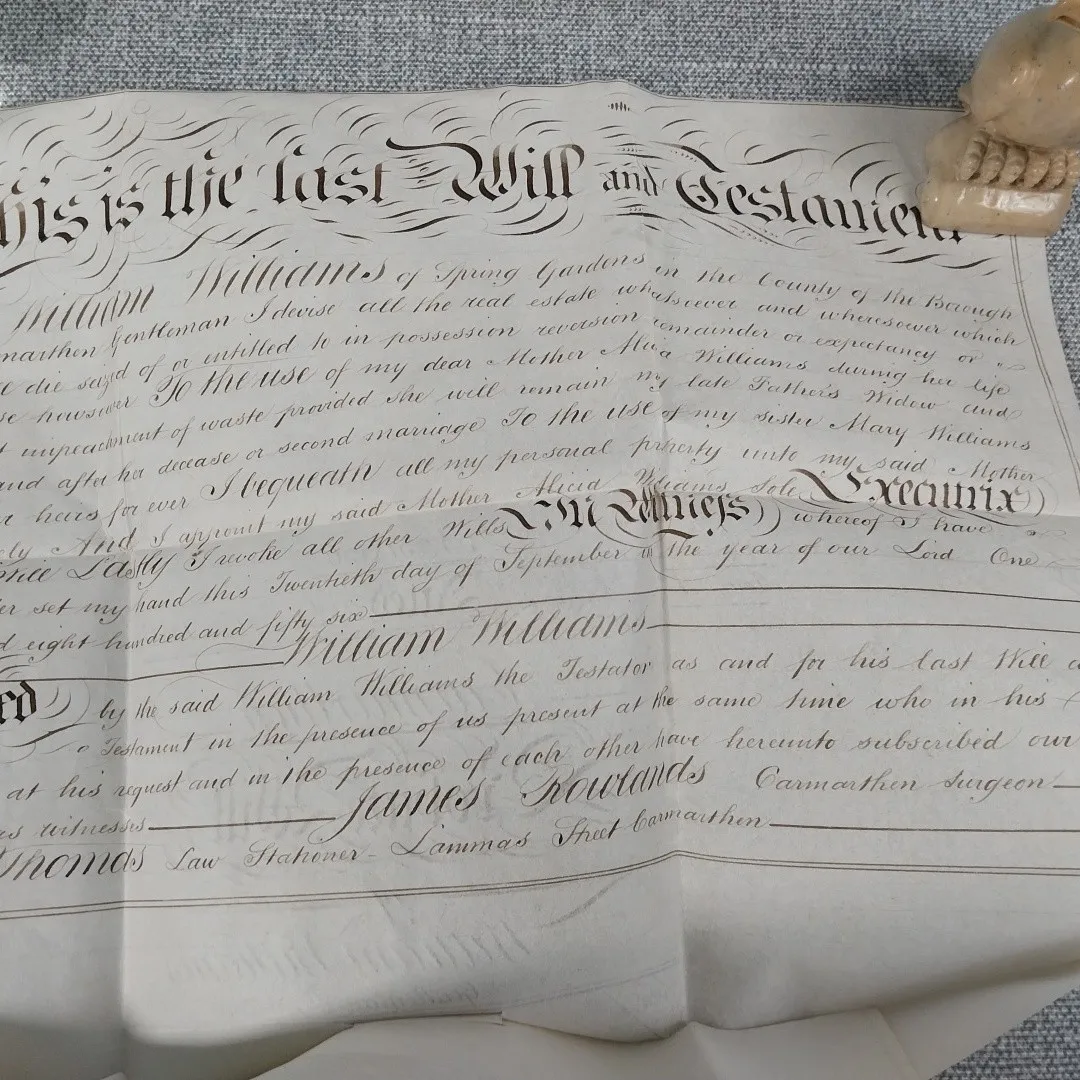 his is the last Will and Testamen
William Williams of Spring Gardens in the County of the Borough
marthen Gentleman I devise all the real estate whatsoever and wheresoever which
e die seized of or entitled to in possession reversion remainder or expectancy or
se howsoever To the use of my dear Mother Alicia Williams during her life
t impeachment of waste provided she will remain my late Father's Widow and
and after her decease or second marriage To the use of my sister Mary Williams
r heirs for ever I bequeath all my personal property unto my said Mother
ely And I appoint my said Mother Alicia Williams Sole Executrix
Will Lastly I revoke all other Wills In Witness whereof I have
er set my hand this Twentieth day of September in the year of our Lord One
d eight hundred and fifty six
William Williams
ed by the said William Williams the Testator as and for his last Will a
Testament in the presence of us present at the same time who in his
at his request and in the presence of each other have hereunto subscribed our
es witnesses James Rowlands Carmarthen Surgeon
Thomas Law Stationer - Lammas Street Carmarthen